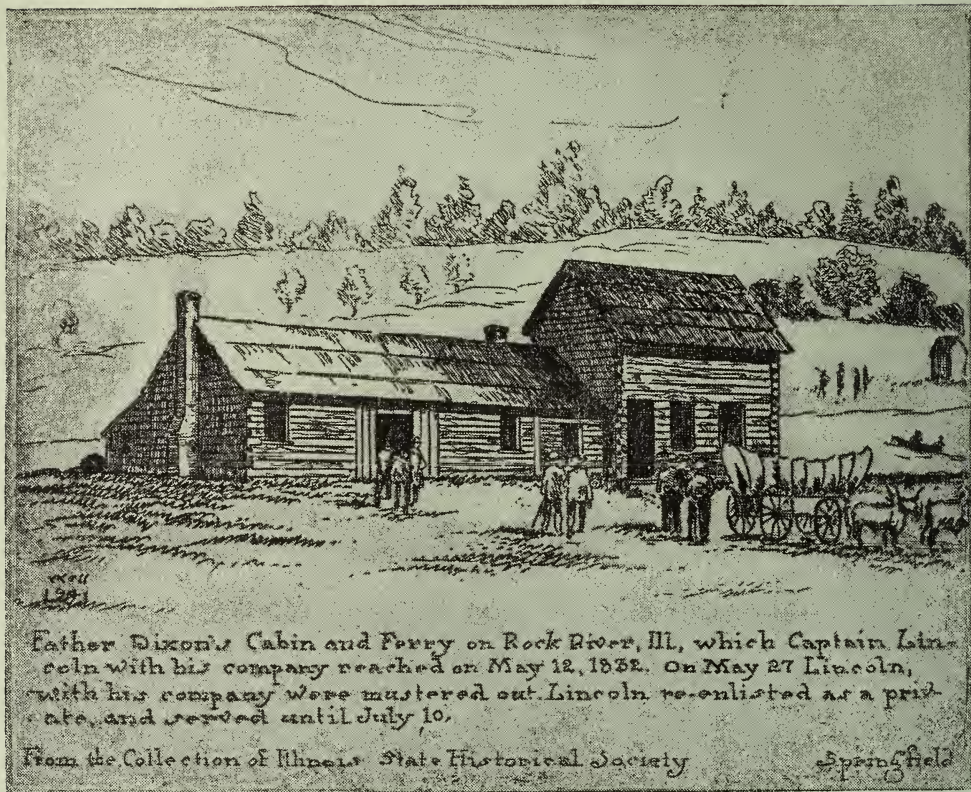 Father Dixon's Cabin and Ferry on Rock River, Ill., which Captain Lin-
coln with his company reached on May 12, 1832. On May 27 Lincoln,
with his company were mustered out. Lincoln re-enlisted as a priv-
ate, and served until July 10.
From the Collection of Illinois State Historical Society Springfield